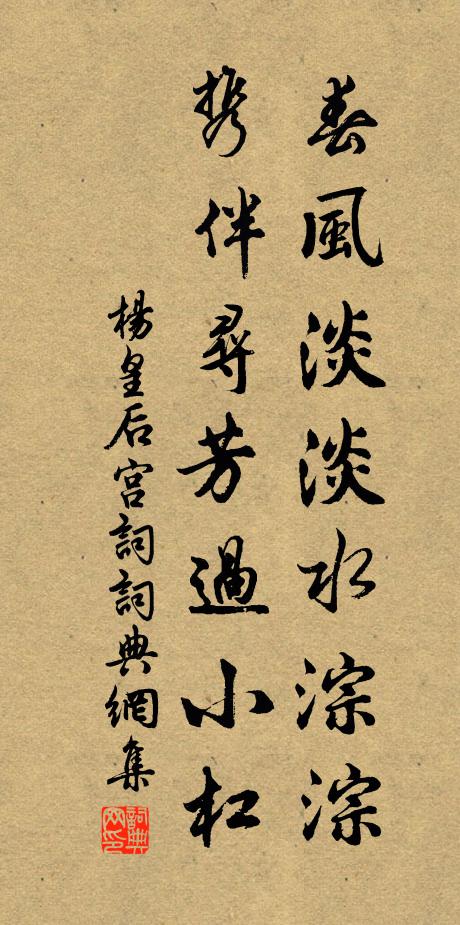 春風淡淡水淙淙
携伴尋芳過小杠
楊皇后宮詞詞典網集
詞典网印